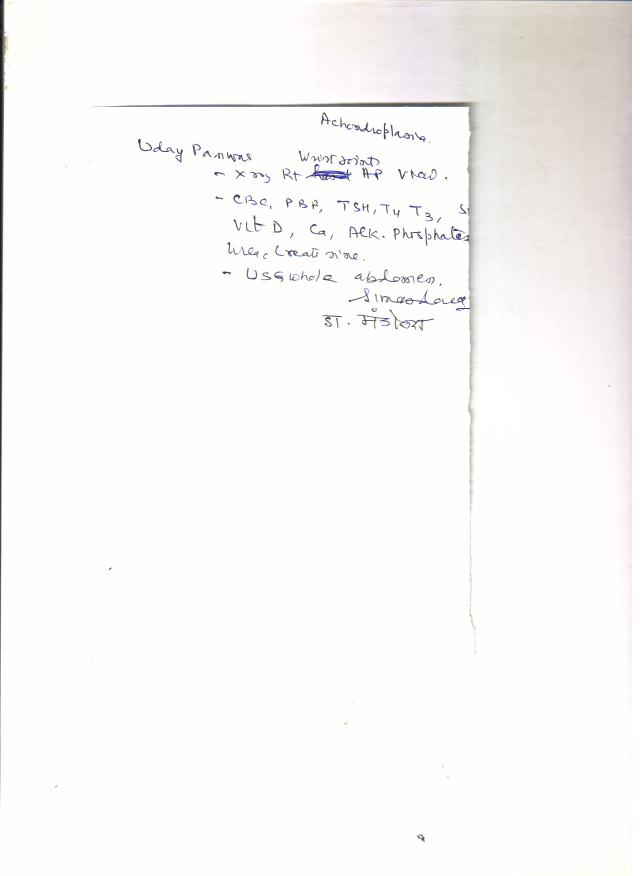 Achondroplasia.
Uday Panwar Wrist joint
- X ray Rt AP view.
- CBC, PBF, TSH, T4 T3, S
Vit D, Ca, Alk. Phosphates
Urea, Creatinine.
- USG whole abdomen.
डा.